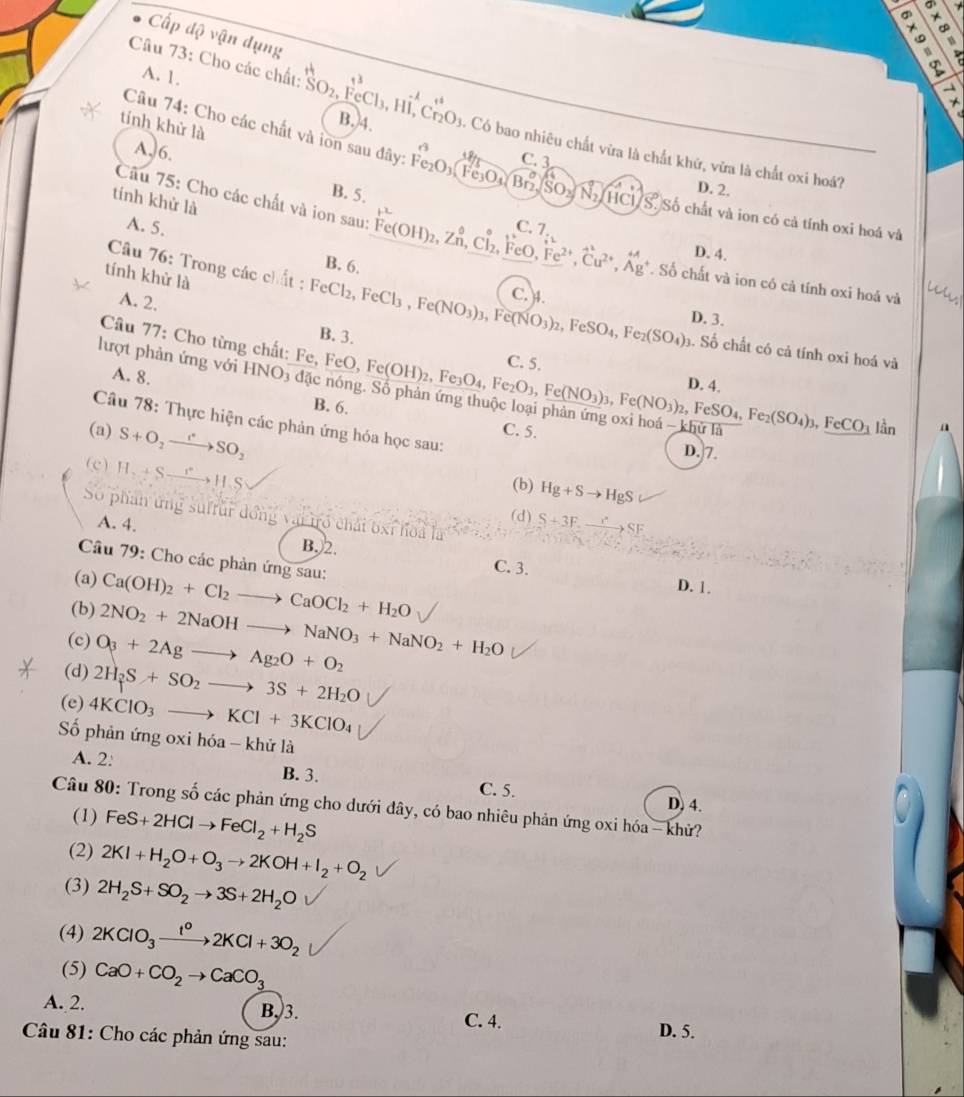 • Cấp độ vận dụng
Câu 73: Cho các chất: SO₂, FeCl₃, HI, Cr₂O₃. Có bao nhiêu chất vừa là chất khử, vừa là chất oxi hoá?
A. 1. B. 4. C. 3 D. 2.
Câu 74: Cho các chất và ion sau đây: Fe₂O₃, Fe₃O₄, Br₂, SO₂, N₂, HCl, S. Số chất và ion có cả tính oxi hoá và
tính khử là
A. 6. B. 5. C. 7. D. 4.
Câu 75: Cho các chất và ion sau: Fe(OH)₂, Zn, Cl₂, FeO, Fe²⁺, Cu²⁺, Ag⁺. Số chất và ion có cả tính oxi hoá và
tính khử là
A. 5. B. 6. C. 4. D. 3.
Câu 76: Trong các chất : FeCl₂, FeCl₃ , Fe(NO₃)₃, Fe(NO₃)₂, FeSO₄, Fe₂(SO₄)₃. Số chất có cả tính oxi hoá và
tính khử là
A. 2. B. 3. C. 5. D. 4.
Câu 77: Cho từng chất: Fe, FeO, Fe(OH)₂, Fe₃O₄, Fe₂O₃, Fe(NO₃)₃, Fe(NO₃)₂, FeSO₄, Fe₂(SO₄)₃, FeCO₃ lần
lượt phản ứng với HNO₃ đặc nóng. Số phản ứng thuộc loại phản ứng oxi hoá – khử là
A. 8. B. 6. C. 5. D. 7.
Câu 78: Thực hiện các phản ứng hóa học sau:
(a) S + O₂ —t°→ SO₂ (b) Hg + S → HgS
(c) H₂ + S —t°→ H₂S (d) S + 3F₂ —t°→ SF₆
Số phản ứng sulfur đóng vai trò chất oxi hoá là
A. 4. B. 2. C. 3. D. 1.
Câu 79: Cho các phản ứng sau:
(a) Ca(OH)₂ + Cl₂ ⟶ CaOCl₂ + H₂O
(b) 2NO₂ + 2NaOH ⟶ NaNO₃ + NaNO₂ + H₂O
(c) O₃ + 2Ag ⟶ Ag₂O + O₂
(d) 2H₂S + SO₂ ⟶ 3S + 2H₂O
(e) 4KClO₃ ⟶ KCl + 3KClO₄
Số phản ứng oxi hóa – khử là
A. 2. B. 3. C. 5. D. 4.
Câu 80: Trong số các phản ứng cho dưới đây, có bao nhiêu phản ứng oxi hóa – khử?
(1) FeS + 2HCl → FeCl₂ + H₂S
(2) 2KI + H₂O + O₃ → 2KOH + I₂ + O₂
(3) 2H₂S + SO₂ → 3S + 2H₂O
(4) 2KClO₃ —t⁰→ 2KCl + 3O₂
(5) CaO + CO₂ → CaCO₃
A. 2. B. 3. C. 4. D. 5.
Câu 81: Cho các phản ứng sau:
6 × 9 = 54